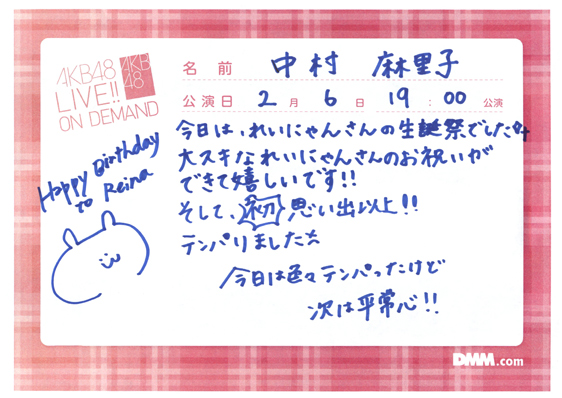 AKB48
LIVE!!
ON DEMAND
AKB
48
名前 中村 麻里子
公演日 2月 6日 19:00 公演
今日は、れいにゃんさんの生誕祭でした
大スキなれいにゃんさんのお祝いが
できて嬉しいです!!
そして、初 思い出以上!!
テンパりました
今日は色々テンパったけど
次は平常心!!
Happy Birthday
to Reina
DMM.com